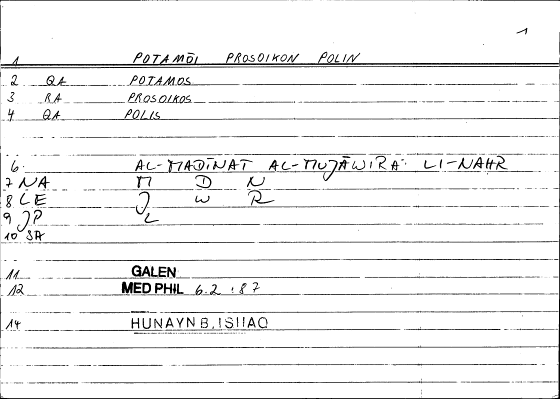 1
1 POTAMŌI PROSOIKON POLIN
2 QA POTAMOS
3 RA PROSOIKOS
4 QA POLIS
6 AL-MADĪNAT AL-MUJĀWIRA LI-NAHR
7 NA M D N
8 LE J W R
9 JP L
10 SA
11 GALEN
12 MED PHIL 6.2 :87
14 HUNAYN B, ISHAQ